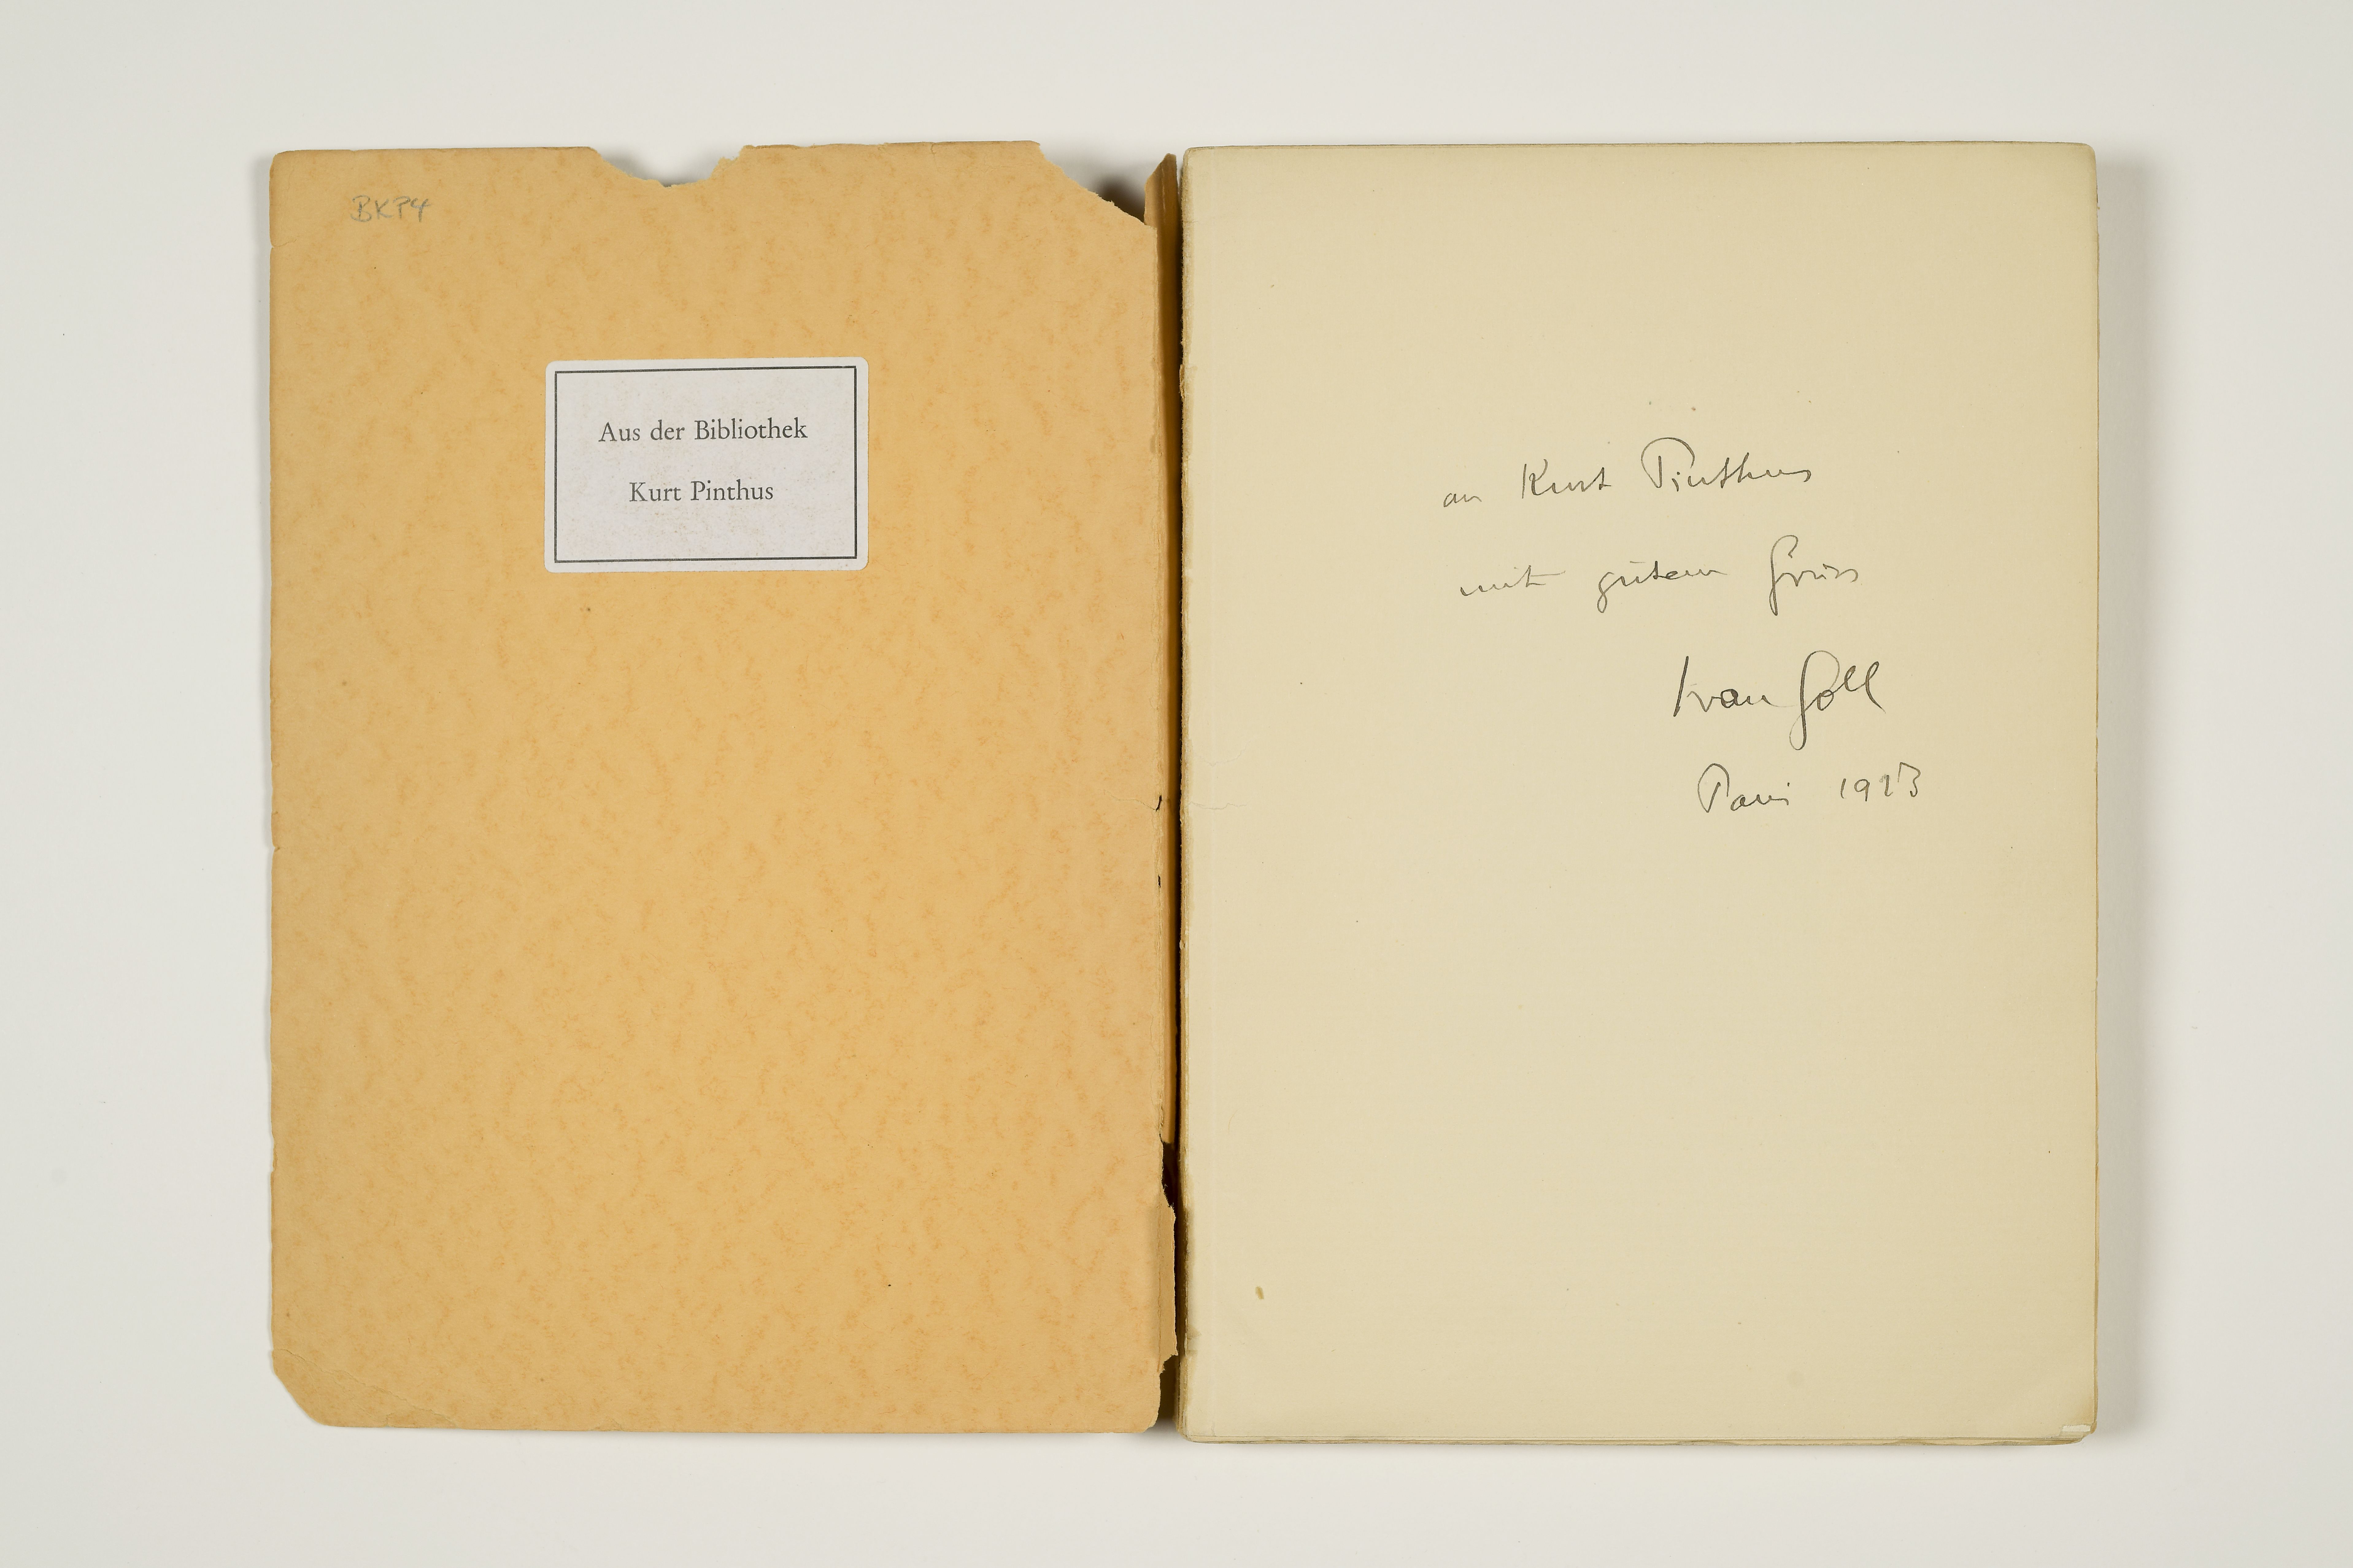 BKP4
Aus der Bibliothek
Kurt Pinthus
an Kurt Pinthus
mit gutem Gruss
Ivan Goll
Paris 1923